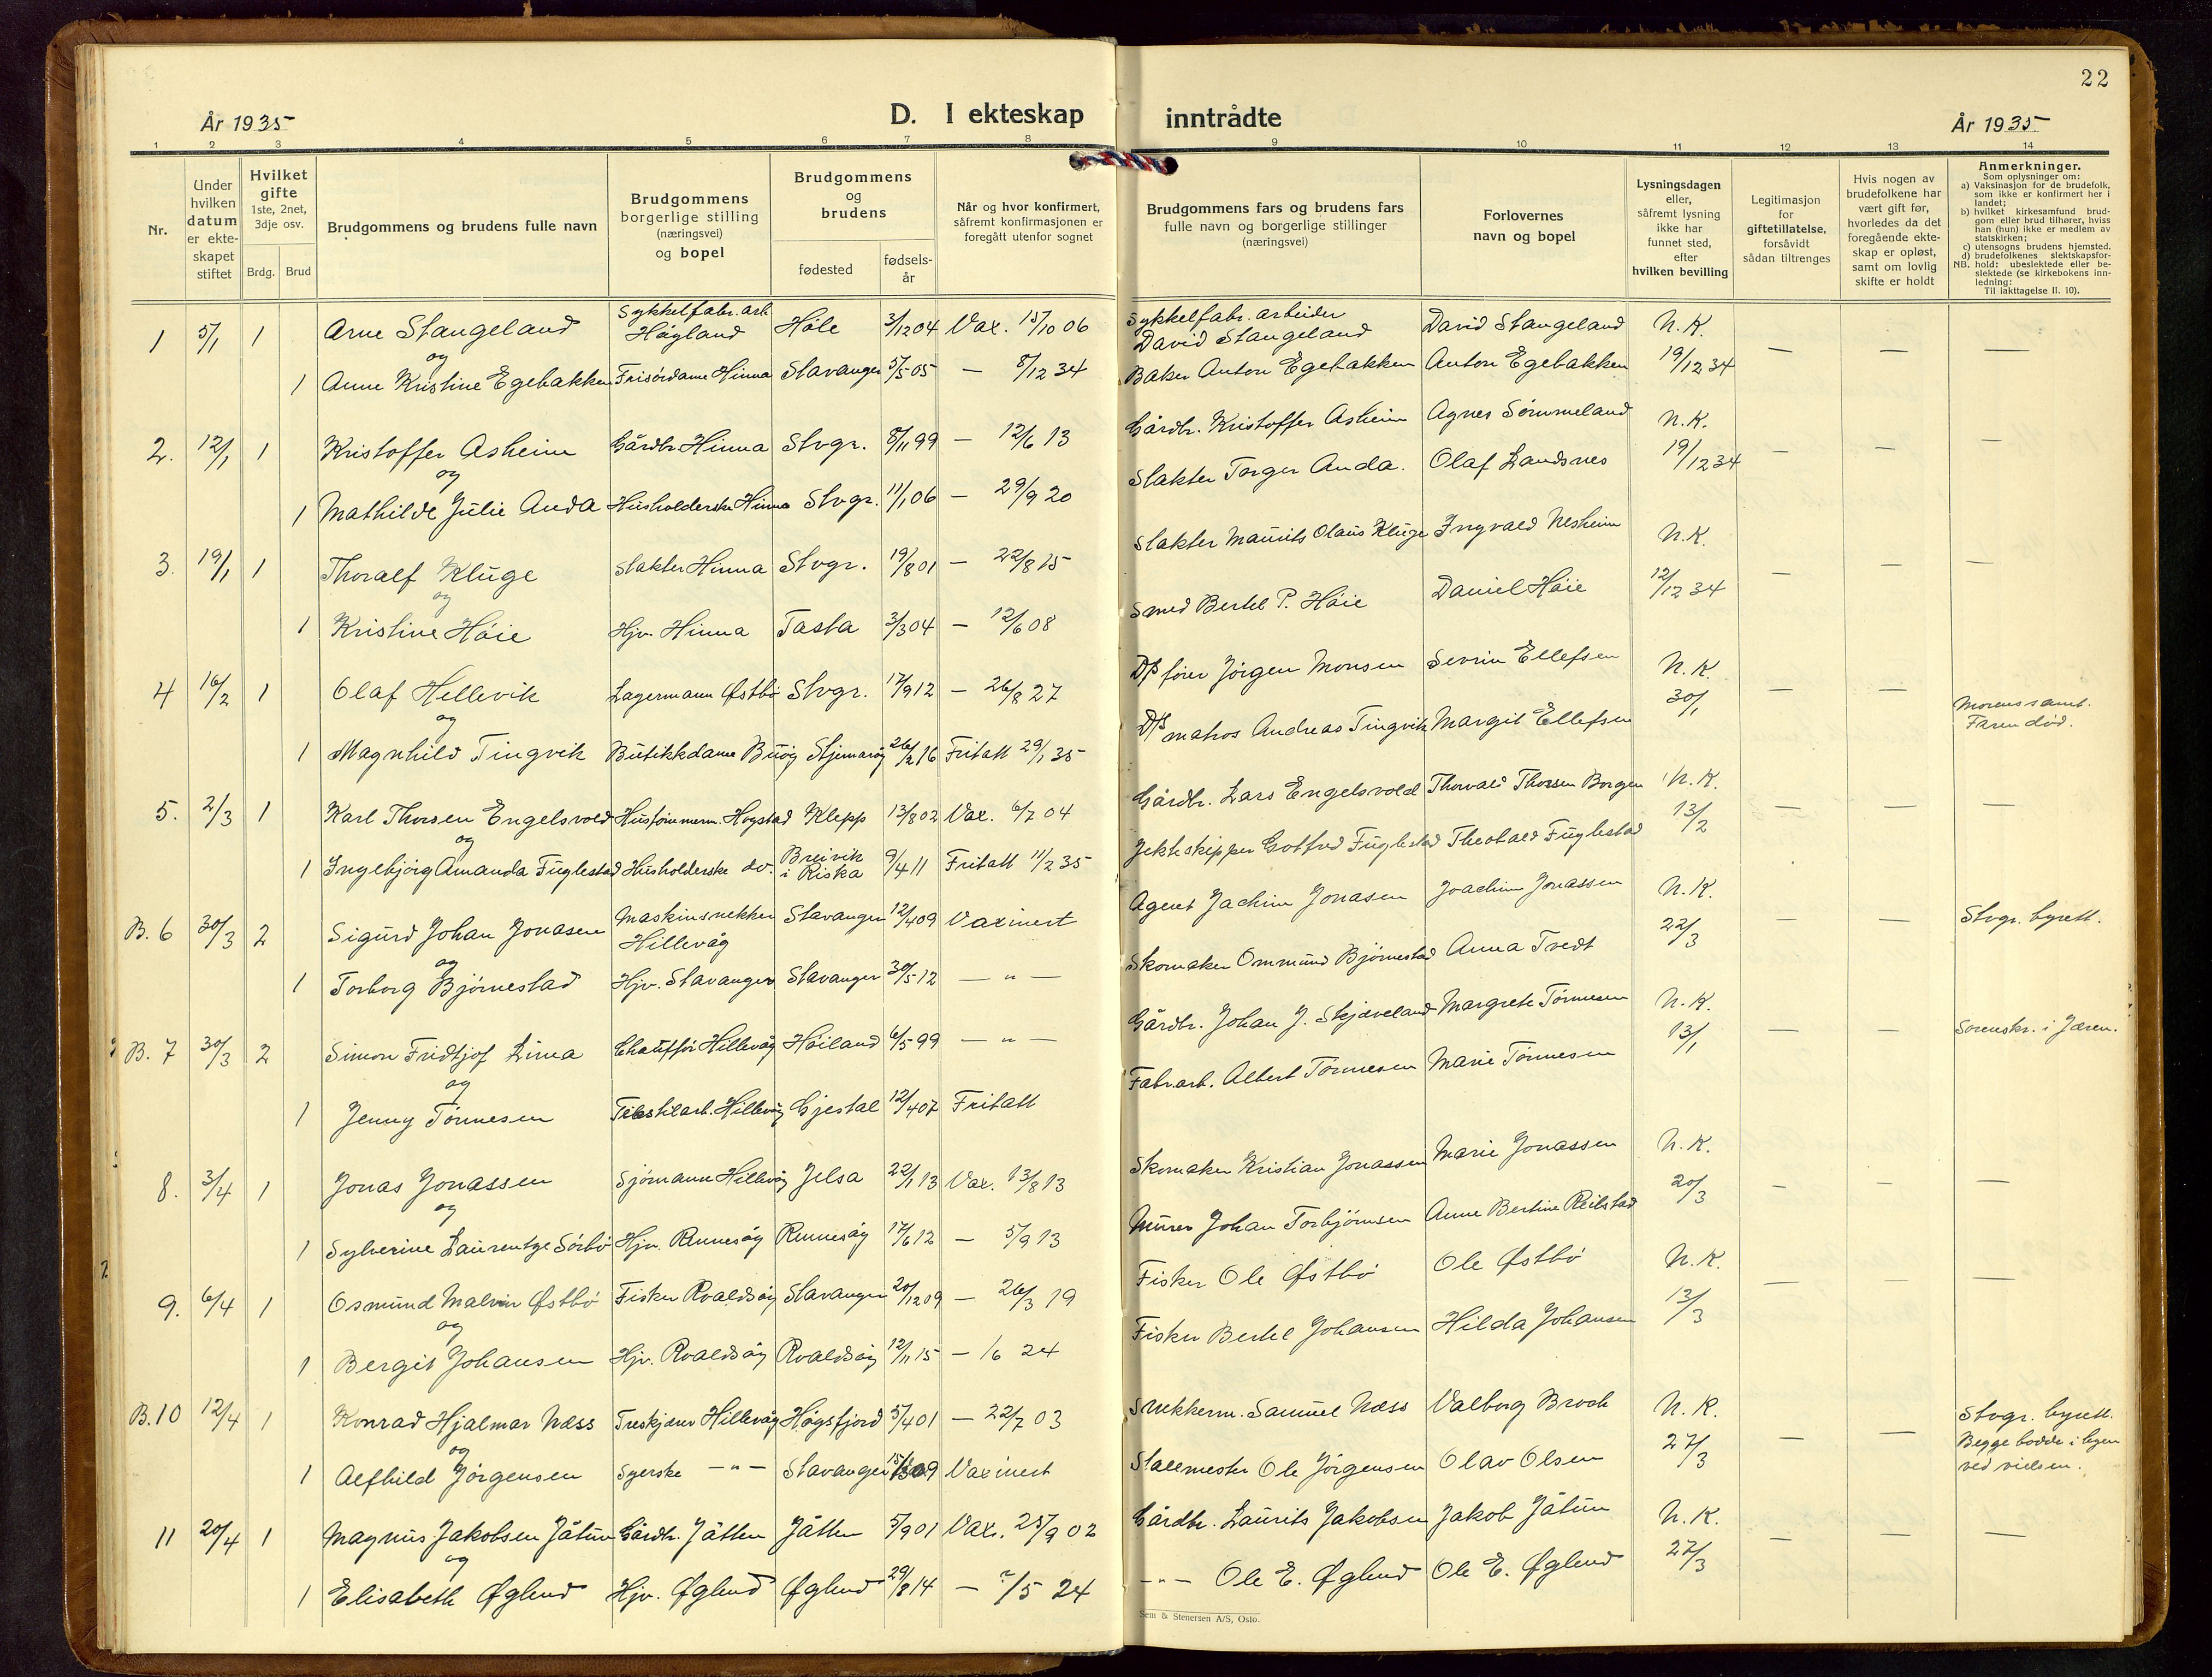 22
År 1935
D. I ekteskap inntrådte
År 1935
1 2 3 4 5 6 7 8 9 10 11 12 13 14
Nr.
Under hvilken datum er ekte-skapet stiftet
Hvilket gifte 1ste, 2net, 3dje osv.
Brdg. Brud
Brudgommens og brudens fulle navn
Brudgommens borgerlige stilling (næringsvei) og bopel
Brudgommens og brudens
fødested fødsels-år
Når og hvor konfirmert, såfremt konfirmasjonen er foregått utenfor sognet
Brudgommens fars og brudens fars fulle navn og borgerlige stillinger (næringsvei)
Forlovernes navn og bopel
Lysningsdagen eller, såfremt lysning ikke har funnet sted, efter hvilken bevilling
Legitimasjon for giftetillatelse, forsåvidt sådan tiltrenges
Hvis nogen av brudefolkene har vært gift før, hvorledes da det foregående ekte-skap er opløst, samt om lovlig skifte er holdt
Anmerkninger.
Som oplysninger om:
a) Vaksinasjon for de brudefolk, som ikke er konfirmert her i landet;
b) hvilket kirkesamfund brud-gom eller brud tilhører, hviss han (hun) ikke er medlem av statskirken;
c) utensogns brudens hjemsted.
d) brudefolkenes slektskapsfor-hold: ubeslektede eller be-slektede (se kirkebokens inn-ledning:
NB. Til iakttagelse II. 10).
1 5/1 1 Arne Stangeland Sykkelfabr. arb. Högland Höle 3/12 04 Vax. 15/10 06 Sykkelfabr. arbeider David Stangeland David Stangeland N.K. — — —
og
1 Anne Kristine Egebakken Frisördame Hinna Stavanger 5/5 05 — 8/12 34 Baker Anton Egebakken Anton Egebakken 19/12 34
2. 12/1 1 Kristoffer Asheim Gårdbr. Hinna Stvgr. 8/11 99 — 12/6 13 Gårdbr. Kristoffer Asheim Agnes Sömmeland N.K. — — —
og
1 Mathilde Julie Anda Husholderske Hinna Stvgr. 11/1 06 — 29/9 20 Slakter Torger Anda. Olaf Landsnes 19/12 34
3. 19/1 1 Thoralf Kluge Slakter Hinna Stvgr. 19/8 01 — 22/8 15 Slakter Maurits Olaus Kluge Ingvald Nesheim N.K. — — —
og
1 Kristine Höie Hjv. Hinna Tasta 3/3 04 — 12/6 08 Smed Bertel P. Höie Daniel Höie 12/12 34
4 16/2 1 Olaf Hellevik Lagermann Østbö Stvgr. 17/9 12 — 26/8 27 D/S förer Jörgen Monsen Sevrin Ellefsen N.K. — —
og
1 Magnhild Tingvik Butikkdame Buöy Stjernaröy 26/2 16 Fritatt 29/1 35 D/S matros Andreas Tingvik Margit Ellefsen 30/1 Morens samt. Faren död.
5. 2/3 1 Karl Thorsen Engelsvold Hustömmerm. Hogstad Klepp 13/8 02 Vax. 6/7 04 Gårdbr. Lars Engelsvold Thorvald Thorsen Borgen N.K. — — —
og
1 Ingebjörg Amanda Fuglestad Husholderske do. Breivik i Riska 9/4 11 Fritatt 11/2 35 Jekteskipper Gotfred Fuglestad Theobald Fuglestad 13/2
B. 6 30/3 2 Sigurd Johan Jonasen Maskinsnekker Hillevåg Stavanger 12/4 09 Vaxinert Agent Jachim Jonasen Joachim Jonassen N.K. — — Stvgr. byrett.
og
1 Torborg Bjørnestad Hjv. Stavanger Stavanger 30/5 12 — " — Skomaker Ommund Bjørnestad Anna Tvedt 22/3
B. 7 30/3 2 Simon Fridtjof Lima Chaufför Hillevåg Höiland 6/5 99 — " — Gårdbr. Johan J. Skjæveland Margrete Tönnesen N.K. — — Sorenskr. i Jæren.
og
1 Jenny Tönnesen Tekstilarb. Hillevåg Gjestal 12/4 07 Fritatt Fabr.arb. Albert Tönnesen Marie Tönnesen 13/1
8. 3/4 1 Jonas Jonassen Sjömann Hillevåg Jelsa 22/1 13 Vax. 13/8 13 Skomaker Kristian Jonassen Marie Jonassen N.K. — — —
og
1 Sylverine Laurentze Sörbö Hjv. Rennesöy Rennesöy 17/6 12 — 5/9 13 Murer Johan Torbjörnsen Anne Bertine Reilstad 20/3
9. 6/4 1 Osmund Malvin Østbö Fisker Roaldsöy Stavanger 20/12 09 — 26/3 19 Fisker Ole Østbö Ole Østbö N.K. — — —
og
1 Bergit Johansen Hjv. Roaldsöy Roaldsöy 12/11 15 — 1/6 24 Fisker Bertel Johansen Hilda Johansen 13/3
B. 10 12/4 1 Konrad Hjalmar Næss Treskjærer Hillevåg Högsfjord 5/4 01 — 22/7 03 Snekkerm. Samuel Næss Valborg Broch N.K. — — Stvgr. byrett.
og
1 Alfhild Jörgensen Syerske — " — Stavanger 09 Vaxinert Stallmester Ole Jörgensen Olav Olsen 27/3 Begge bodde i byen ved vielsen.
11 20/4 1 Magnus Jakobsen Jåtun Gårdbr. Jåtten Jåtten 5/9 01 Vax. 25/9 02 Gårdbr. Laurits Jakobsen Jakob Jåtun N.K. — — —
og
1 Elisabeth Øglend Hjv. Øglend Øglend 29/8 14 — ?/5 24 — " — Ole E. Øglend Ole E. Øglend 27/3
Sem & Stenersen A/S, Oslo.